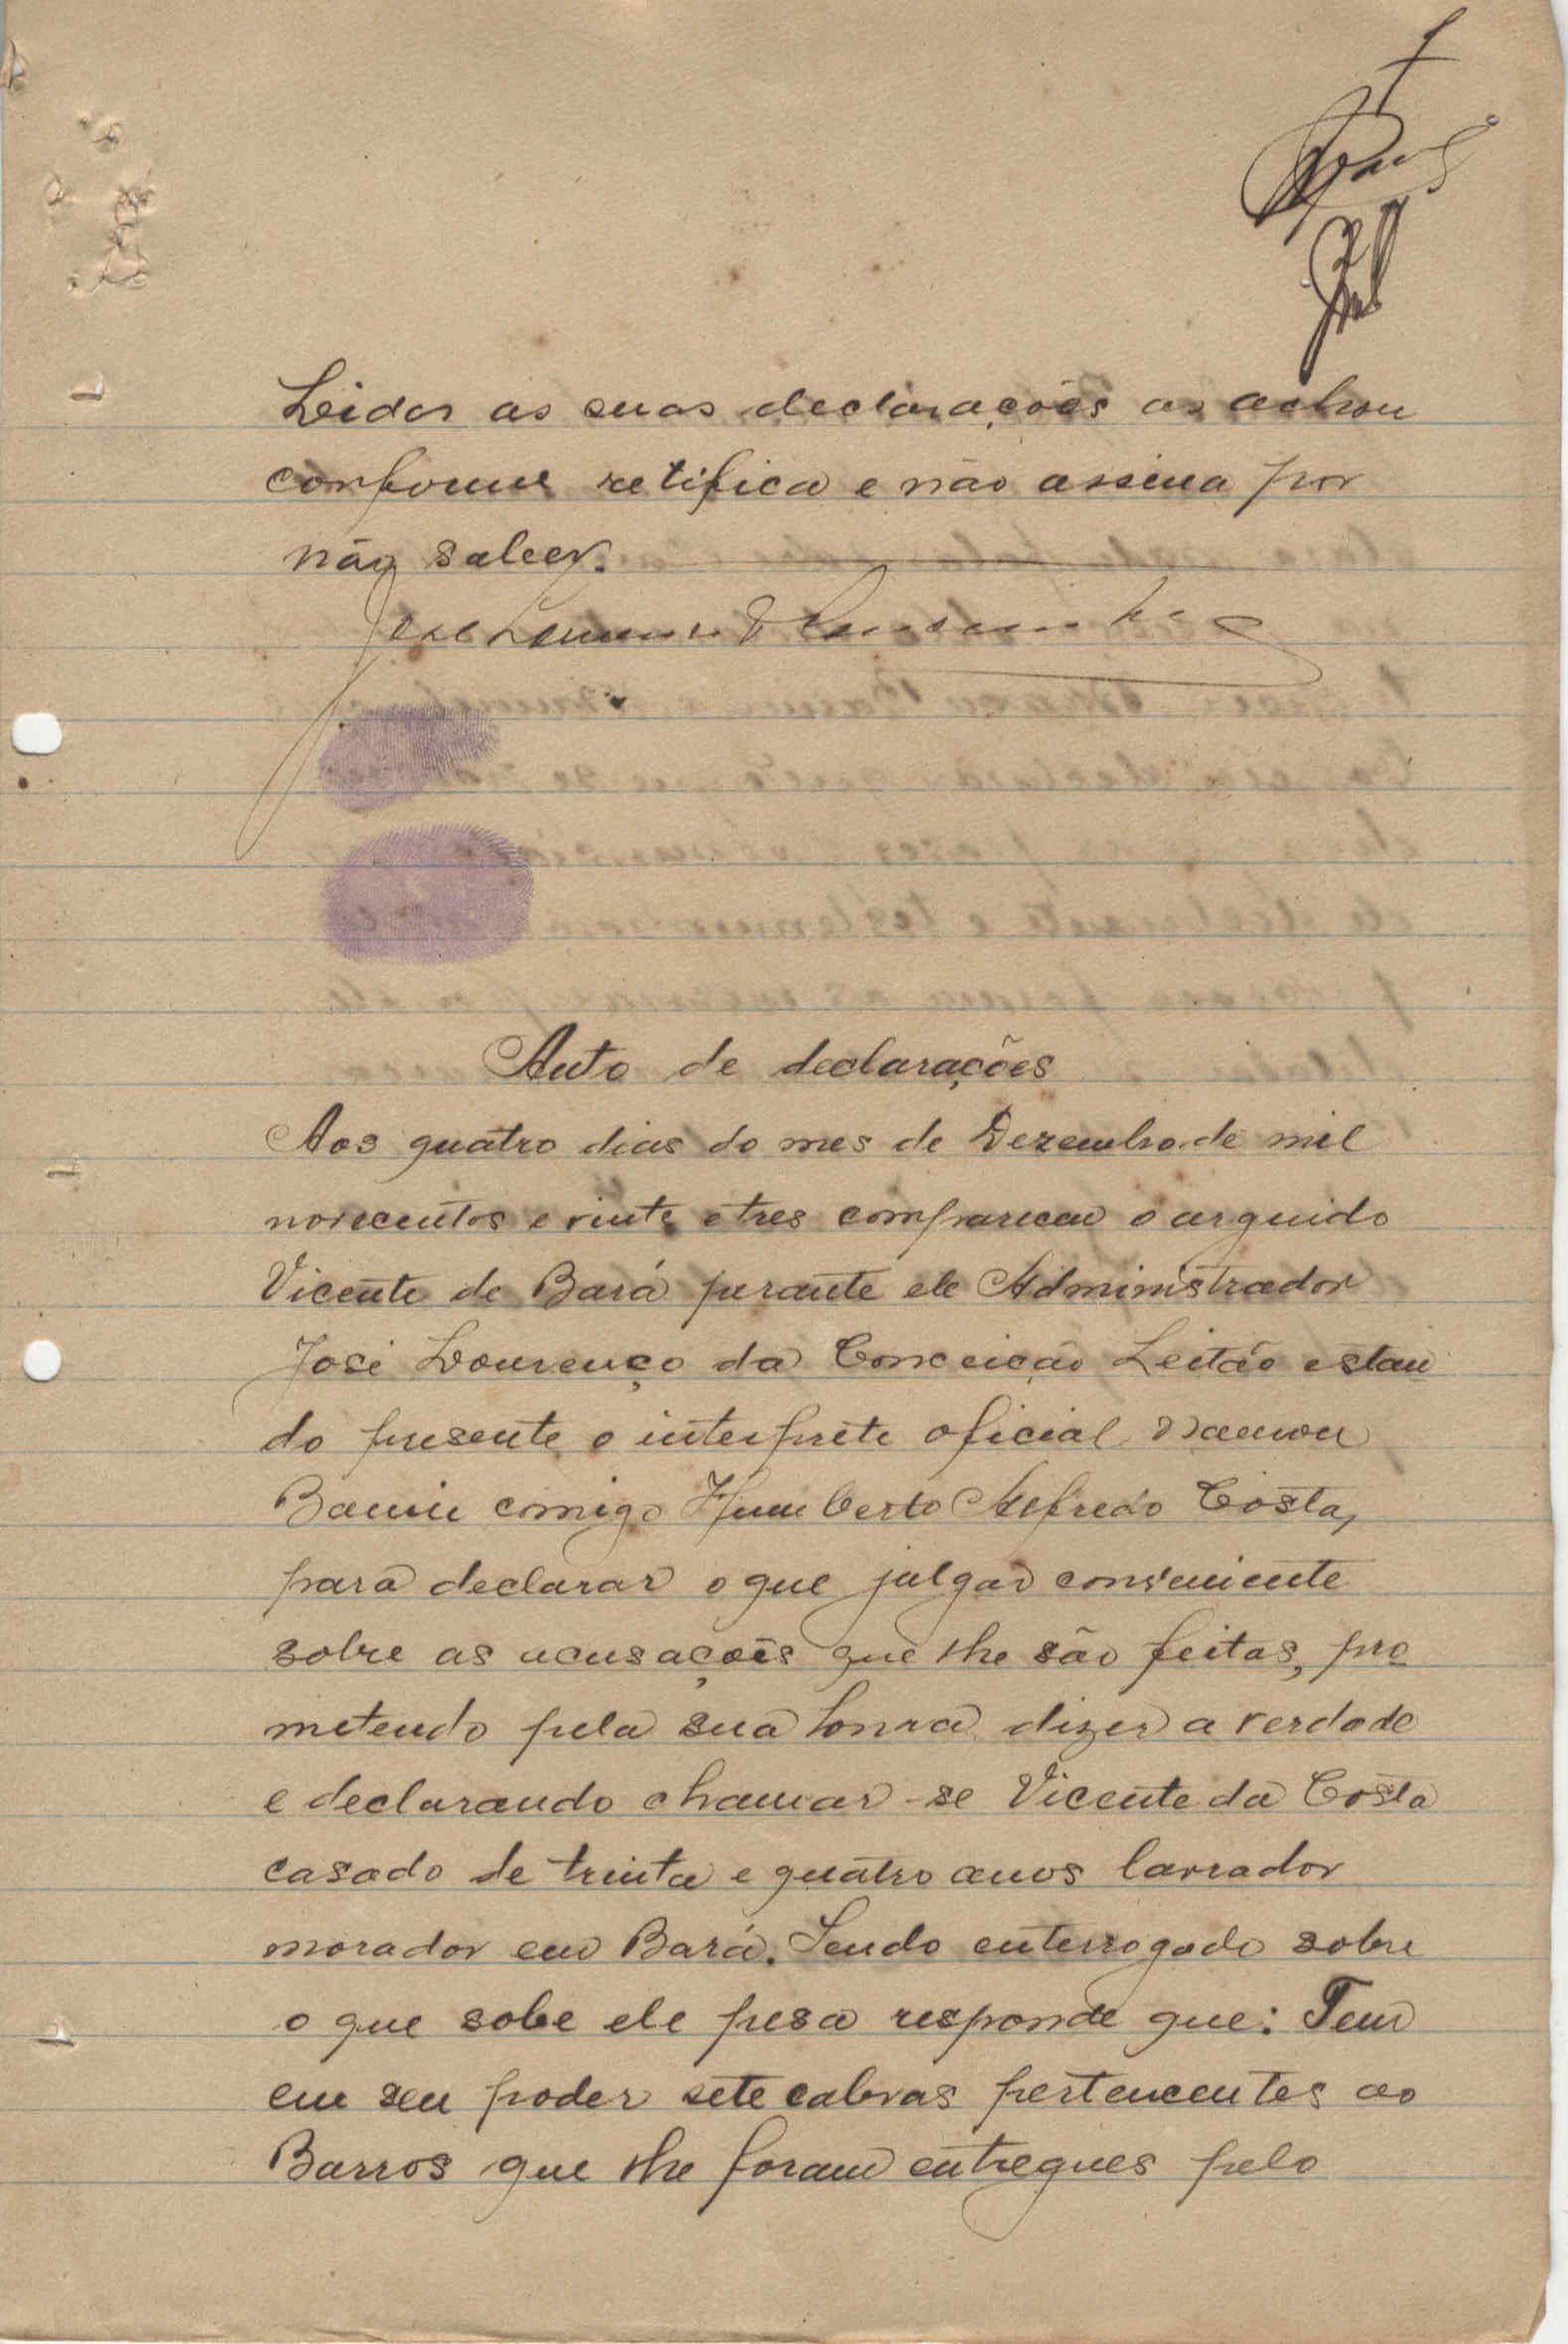 Leidas as suas declarações as achou
conforme retifica e não assina por
não saber.
Auto de declarações
Aos quatro dias do mes de Dezembro de mil
novecentos e vinte e tres compareceu o arguido
Vicente de Bará perante ele Administrador
José Lourenço da Conceição Leitão estan
do presente o interprete oficial Mamou
comigo Humberto Alfredo Costa,
para declarar o que julgar conveniente
sobre as acusações que lhe são feitas, pro
metendo pela sua honra dizer a verdade
e declarando chamar-se Vicente da Costa
casado de trinta e quatro anos lavrador
morador em Bará. Sendo enterrogado sobre
o que sobe ele pesa responde que: Tem
em seu poder sete cabras pertencentes ao
Barros que lhe foram entregues pelo